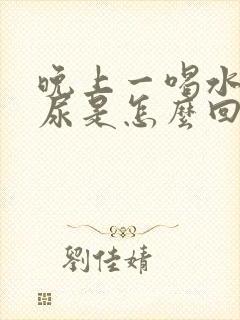 晚上一喝水
尿是怎麼回
劉佳婧